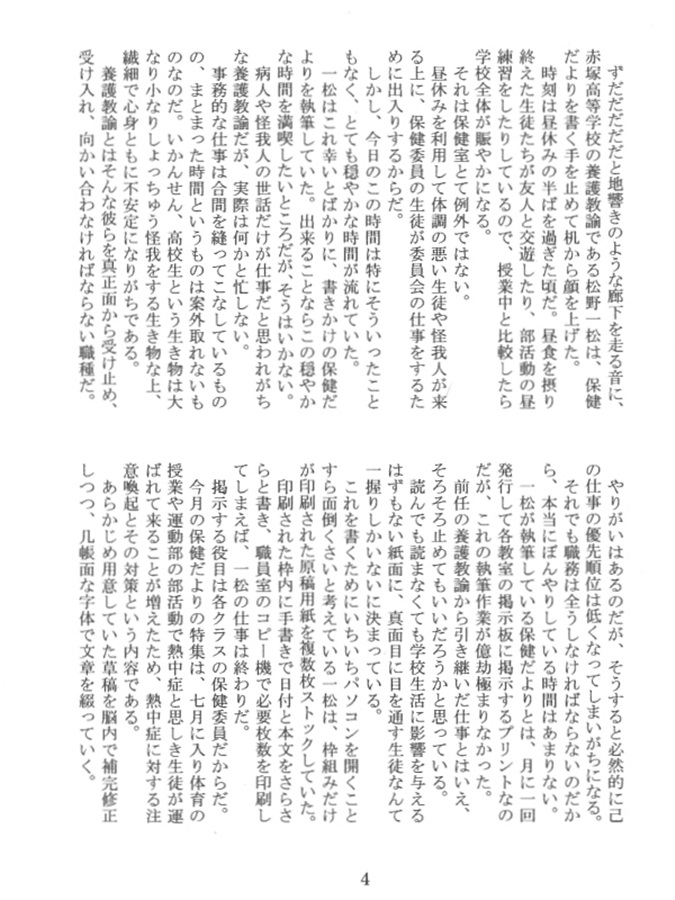 ずだだだだだと地響きのような廊下を走る音に、
赤塚高等学校の養護教諭である松野一松は、保健
だよりを書く手を止めて机から顔を上げた。
時刻は昼休みの半ばを過ぎた頃だ。昼食を摂り
終えた生徒たちが友人と交遊したり、部活動の昼
練習をしたりしているので、授業中と比較したら
学校全体が賑やかになる。
それは保健室とて例外ではない。
昼休みを利用して体調の悪い生徒や怪我人が来
る上に、保健委員の生徒が委員会の仕事をするた
めに出入りするからだ。
しかし、今日のこの時間は特にそういったこと
もなく、とても穏やかな時間が流れていた。
一松はこれ幸いとばかりに、書きかけの保健だ
よりを執筆していた。出来ることならこの穏やか
な時間を満喫したいところだが、そうはいかない。
病人や怪我人の世話だけが仕事だと思われがち
な養護教諭だが、実際は何かと忙しない。
事務的な仕事は合間を縫ってこなしているもの
の、まとまった時間というものは案外取れないも
のなのだ。いかんせん、高校生という生き物は大
なり小なりしょっちゅう怪我をする生き物な上、
繊細で心身ともに不安定になりがちである。
養護教諭とはそんな彼らを真正面から受け止め、
受け入れ、向かい合わなければならない職種だ。
やりがいはあるのだが、そうすると必然的に己
の仕事の優先順位は低くなってしまいがちになる。
それでも職務は全うしなければならないのだか
ら、本当にぼんやりしている時間はあまりない。
一松が執筆している保健だよりとは、月に一回
発行して各教室の掲示板に掲示するプリントなの
だが、これの執筆作業が億劫極まりなかった。
前任の養護教諭から引き継いだ仕事とはいえ、
そろそろ止めてもいいだろうかと思っている。
読んでも読まなくても学校生活に影響を与える
はずもない紙面に、真面目に目を通す生徒なんて
一握りしかいないに決まっている。
これを書くためにいちいちパソコンを開くこと
すら面倒くさいと考えている一松は、枠組みだけ
が印刷された原稿用紙を複数枚ストックしていた。
印刷された枠内に手書きで日付と本文をさらさ
らと書き、職員室のコピー機で必要枚数を印刷し
てしまえば、一松の仕事は終わりだ。
掲示する役目は各クラスの保健委員だからだ。
今月の保健だよりの特集は、七月に入り体育の
授業や運動部の部活動で熱中症と思しき生徒が運
ばれて来ることが増えたため、熱中症に対する注
意喚起とその対策という内容である。
あらかじめ用意していた草稿を脳内で補完修正
しつつ、几帳面な字体で文章を綴っていく。
4